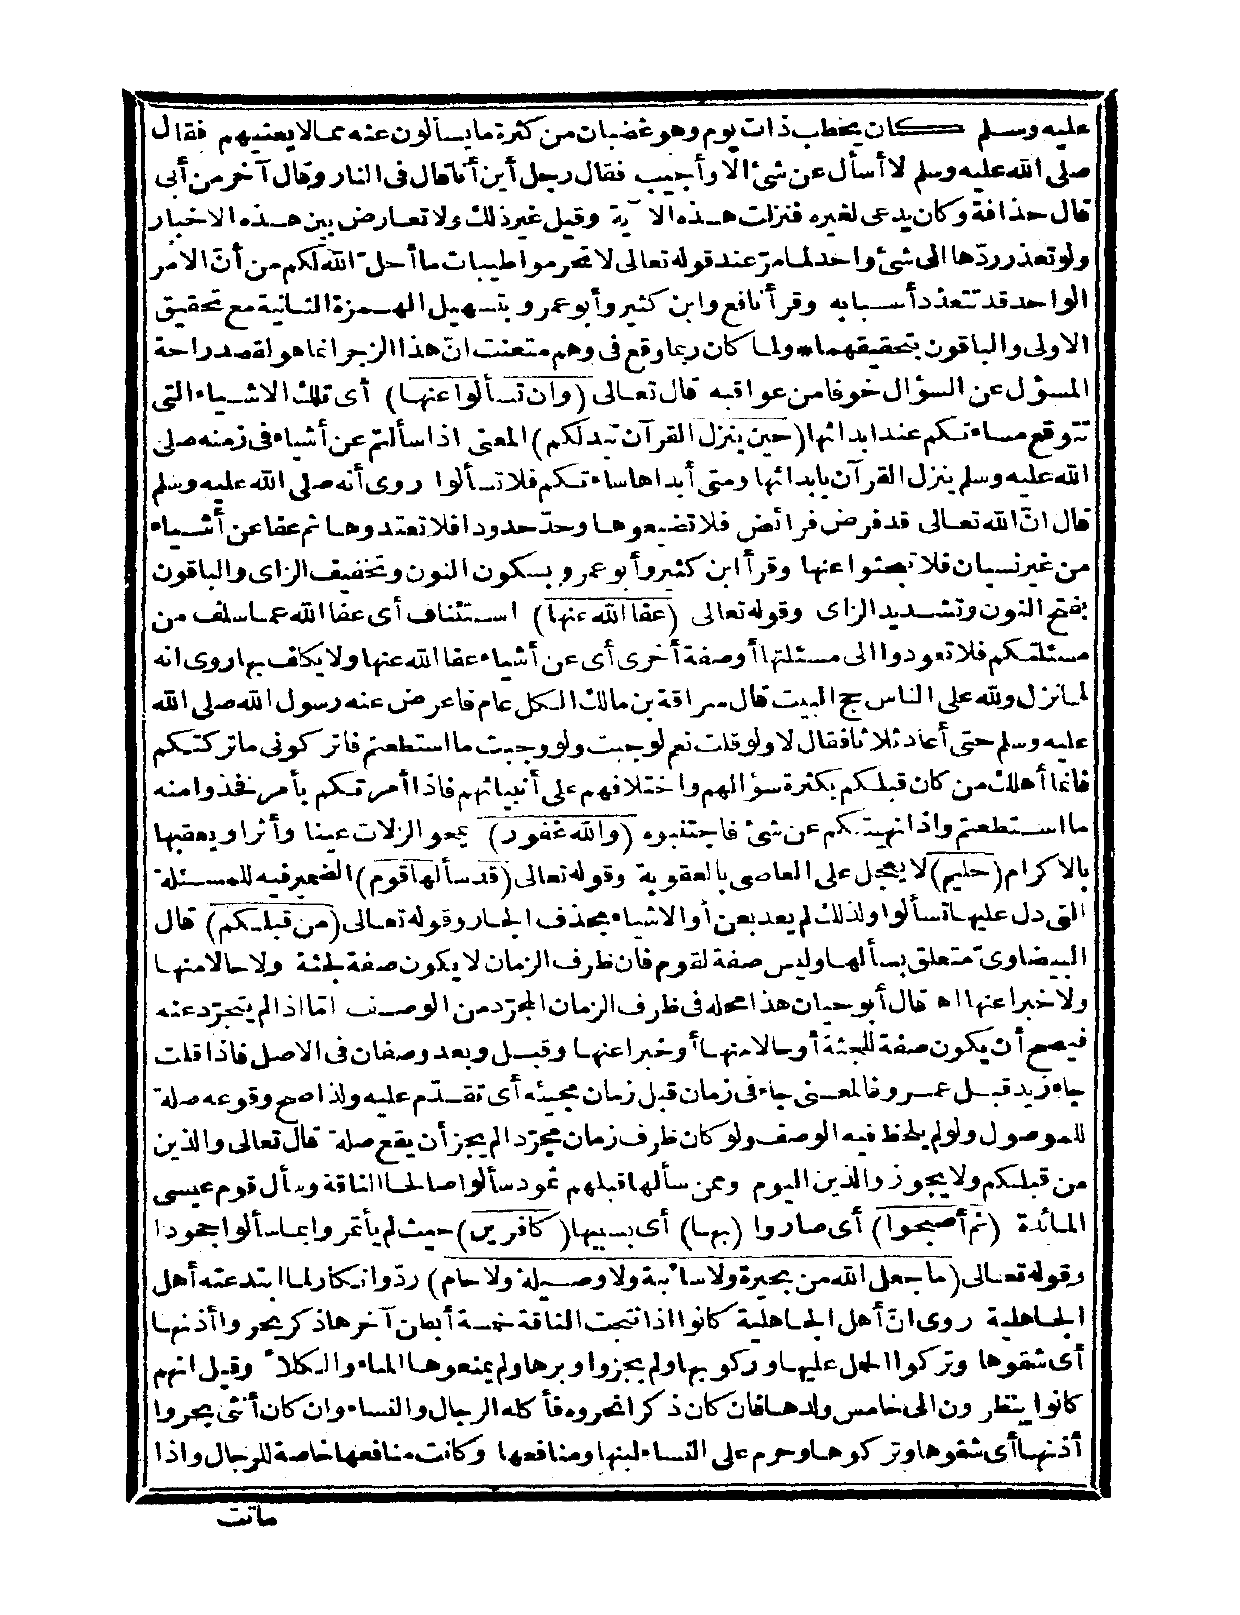 عليه وسلم كان يخطب ذات يوم وهو غضبان من كثرة ما يسألون عنه مما لا يعنيهم فقال
صلى الله عليه وسلم لا أسأل عن شئ الا وأجيب فقال رجل أين أنا قال فى النار وقال آخر من أبى
قال حذافة وكان يدعى لغيره فنزلت هذه الآية وقيل غير ذلك ولا تعارض بين هذه الاخبار
ولو تعذر ردّها الى شئ واحد لما مرّ عند قوله تعالى لا تحرموا طيبات ما أحل الله لكم من أنّ الامر
الواحد قد تتعدد أسبابه وقرأ نافع وابن كثير وأبو عمرو بتسهيل الهمزة الثانية مع تحقيق
الاولى والباقون بتحقيقهما * ولما كان ربما وقع فى وهم متعنت انّ هذا الزجر انما هو لقصد راحة
المسؤل عن السؤال خوفا من عواقبه قال تعالى (وان تسألوا عنها) أى تلك الاشياء التى
تتوقع مساءتكم عند ابدائها (حين ينزل القرآن تبدلكم) المعنى اذا سألتم عن أشياء فى زمنه صلى
الله عليه وسلم ينزل القرآن بابدائها ومتى أبداها ساءتكم فلا تسألوا روى أنه صلى الله عليه وسلم
قال انّ الله تعالى قد فرض فرائض فلا تضيعوها وحدّ حدودا فلا تعتدوها ثم عفا عن أشياء
من غير نسيان فلا تبحثوا عنها وقرأ ابن كثير وأبو عمرو بسكون النون وتخفيف الزاى والباقون
بفتح النون وتشديد الزاى وقوله تعالى (عفا الله عنها) استئناف أى عفا الله عما سلف من
مسئلتكم فلا تعودوا الى مسئلتها أو صفة أخرى أى عن أشياء عفا الله عنها ولا يكلف بها روى انه
لما نزل ولله على الناس حج البيت قال سراقة بن مالك الكل عام فاعرض عنه رسول الله صلى الله
عليه وسلم حتى أعاد ثلاثا فقال لا ولو قلت نعم لوجبت ولو وجبت ما استطعتم فاتركونى ما تركتكم
فانما أهلك من كان قبلكم بكثرة سؤالهم واختلافهم على أنبيائهم فاذا أمرتكم بأمر فخذوا منه
ما استطعتم واذا نهيتكم عن شئ فاجتنبوه (والله غفور) يمحو الزلات عينا وأثرا ويعقبها
بالاكرام (حليم) لا يعجل على العاصى بالعقوبة وقوله تعالى (قد سألها قوم) الضمير فيه للمسئلة
التى دل عليها تسألوا ولذلك لم يعد بعن أو الاشياء بحذف الجار وقوله تعالى (من قبلكم) قال
البيضاوىّ متعلق بسألها وليس صفة لقوم فان ظرف الزمان لا يكون صفة لجثة ولا حالا منها
ولا خبرا عنها اه قال أبو حيان هذا محله فى ظرف الزمان المجرّد من الوصف امّا اذا لم يتجرّد عنه
فيصح أن يكون صفة للجثة أو حالا منها أو خبرا عنها وقبل وبعد وصفان فى الاصل فاذا قلت
جاء زيد قبل عمرو فالمعنى جاء فى زمان قبل زمان مجيئه أى تقدّم عليه ولذا صح وقوعه صلة
للموصول ولو لم يلحظ فيه الوصف ولو كان ظرف زمان مجرّد الم يجز أن يقع صلة قال تعالى والذين
من قبلكم ولا يجوز والذين اليوم وممن سألها قبلهم ثمود سألوا صالحا الناقة وسأل قوم عيسى
المائدة (ثم أصبحوا) أى صاروا (بها) أى بسببها (كافرين) حيث لم يأتمروا بما سألوا جحودا
وقوله تعالى (ما جعل الله من بحيرة ولا سائبة ولا وصيلة ولا حام) ردّ وانكار لما ابتدعته أهل
الجاهلية روى انّ أهل الجاهلية كانوا اذا نتجت الناقة خمسة أبطن آخرها ذكر بحروا أذنها
أى شقوها وتركوا الحمل عليها وركوبها ولم يجزوا وبرها ولم يمنعوها الماء والكلأ وقيل انهم
كانوا ينتظرون الى خامس ولدها فان كان ذكرا نحروه فأكله الرجال والنساء وان كان أنثى بحروا
أذنها أى شقوها وتركوها وحرم على النساء لبنها ومنافعها وكانت منافعها خاصة للرجال واذا
ماتت